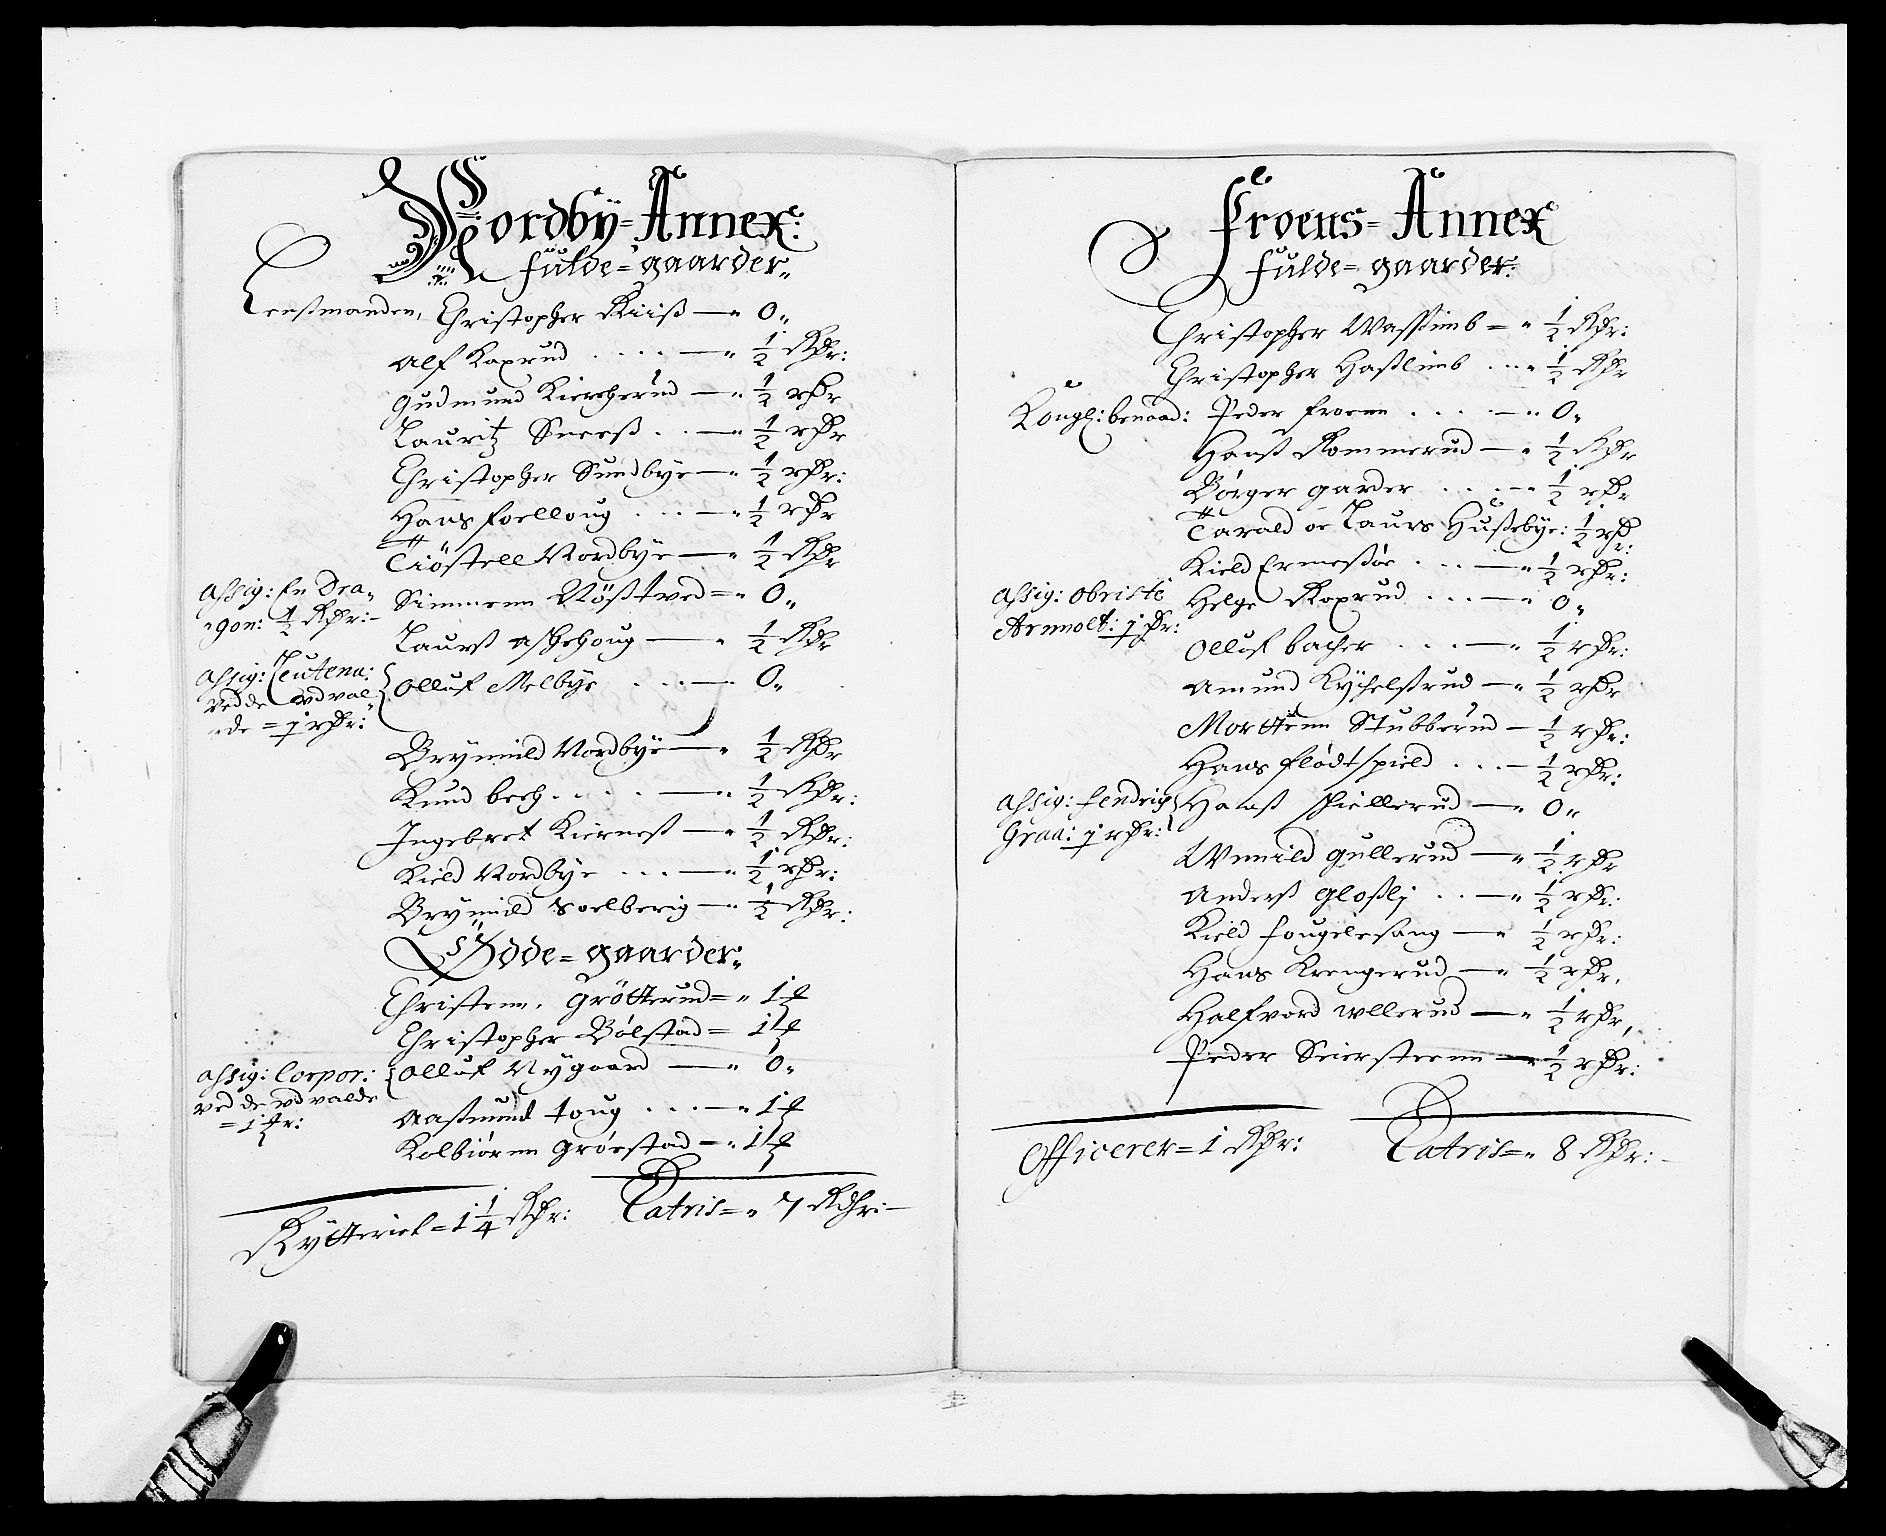 Nordbÿ=Annex:
fulde=gaarder
Lensmanden, Christopher Riiis — 0
Alf Kaxrud .... — ½ Rdr:
Gudmund Kiercherud — ½ rdr
Lauritz Sneeß .. — ½ rdr
Christopher Sundbye — ½ rdr:
Hans foelloug ... — ½ rdr
Tiöstell Nordbye — ½ Rdr
Assig: En Dra-
gon: ½ Rdr:
Simmenn Nößtved = 0
Laurß Aschehoug — ½ Rdr
Assig: Leutena:
ved de vdval
ede = 1 rdr:
Olluf Melbye ... — 0
Brynnild Nordbye — ½ Rdr
Knud bech .... — ½ Rdr:
Ingebret Kierneß — ½ Rdr:
Kield Nordbye ... — ½ rdr:
Brynnild Soelberig — ½ Rdr:
Ödde=gaarder
Christenn. Grötterud = 1
Christopher Bölstad = 1
Assig: Corpor:
ved de vdvalde
Olluf Nygaard — 0
Aasmund toug ... — 1
Kolbiörnn Grörstad — 1
Rÿtteriet = 1¼ Rdr: Latris = 7 Rdhr:
Froens=Annex
fulde=gaarder:
Christopher Wassimb = ½ Rdr:
Christopher Haßlimb ... ½ Rdr
Kongl: benaad: Peder froenn .... — 0
Hanß Rommerud — ½ Rdr
Börger garder ... — ½ rdr
Tarald oc Laurs Hußebye: ½ rdr:
Kield Ermeßöe ... — ½ rdr:
Assig: Obriste
Arnnolt: 1 dr:
Helge Raxrud ... — 0
Olluf bacher ... — ½ rdr:
Amund Kÿchelsrud — ½ rdr
Mortenn Stubberud — ½ rdr:
Hans flödtspield ... — ½ rdr:
Assig: fendrich
Graa: 1 rdr:
Hanß schiellerud — 0
Wnnild gullerud — ½ rdr
Anderß gloßlj .. — ½ rdr:
Kield fouglesang — ½ rdr:
Hans Krengerud — ½ rdr.
Halfvord ullerud — ½ rdr,
Peder Seiersteenn — ½ rdr:
Officerer = 1 Rdr: Latris = 8 Rdr: